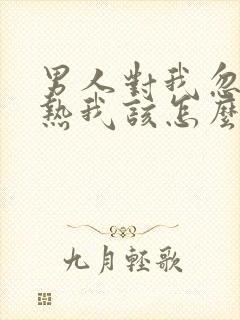 男人對我忽
熱我該怎麼
九月輕歌